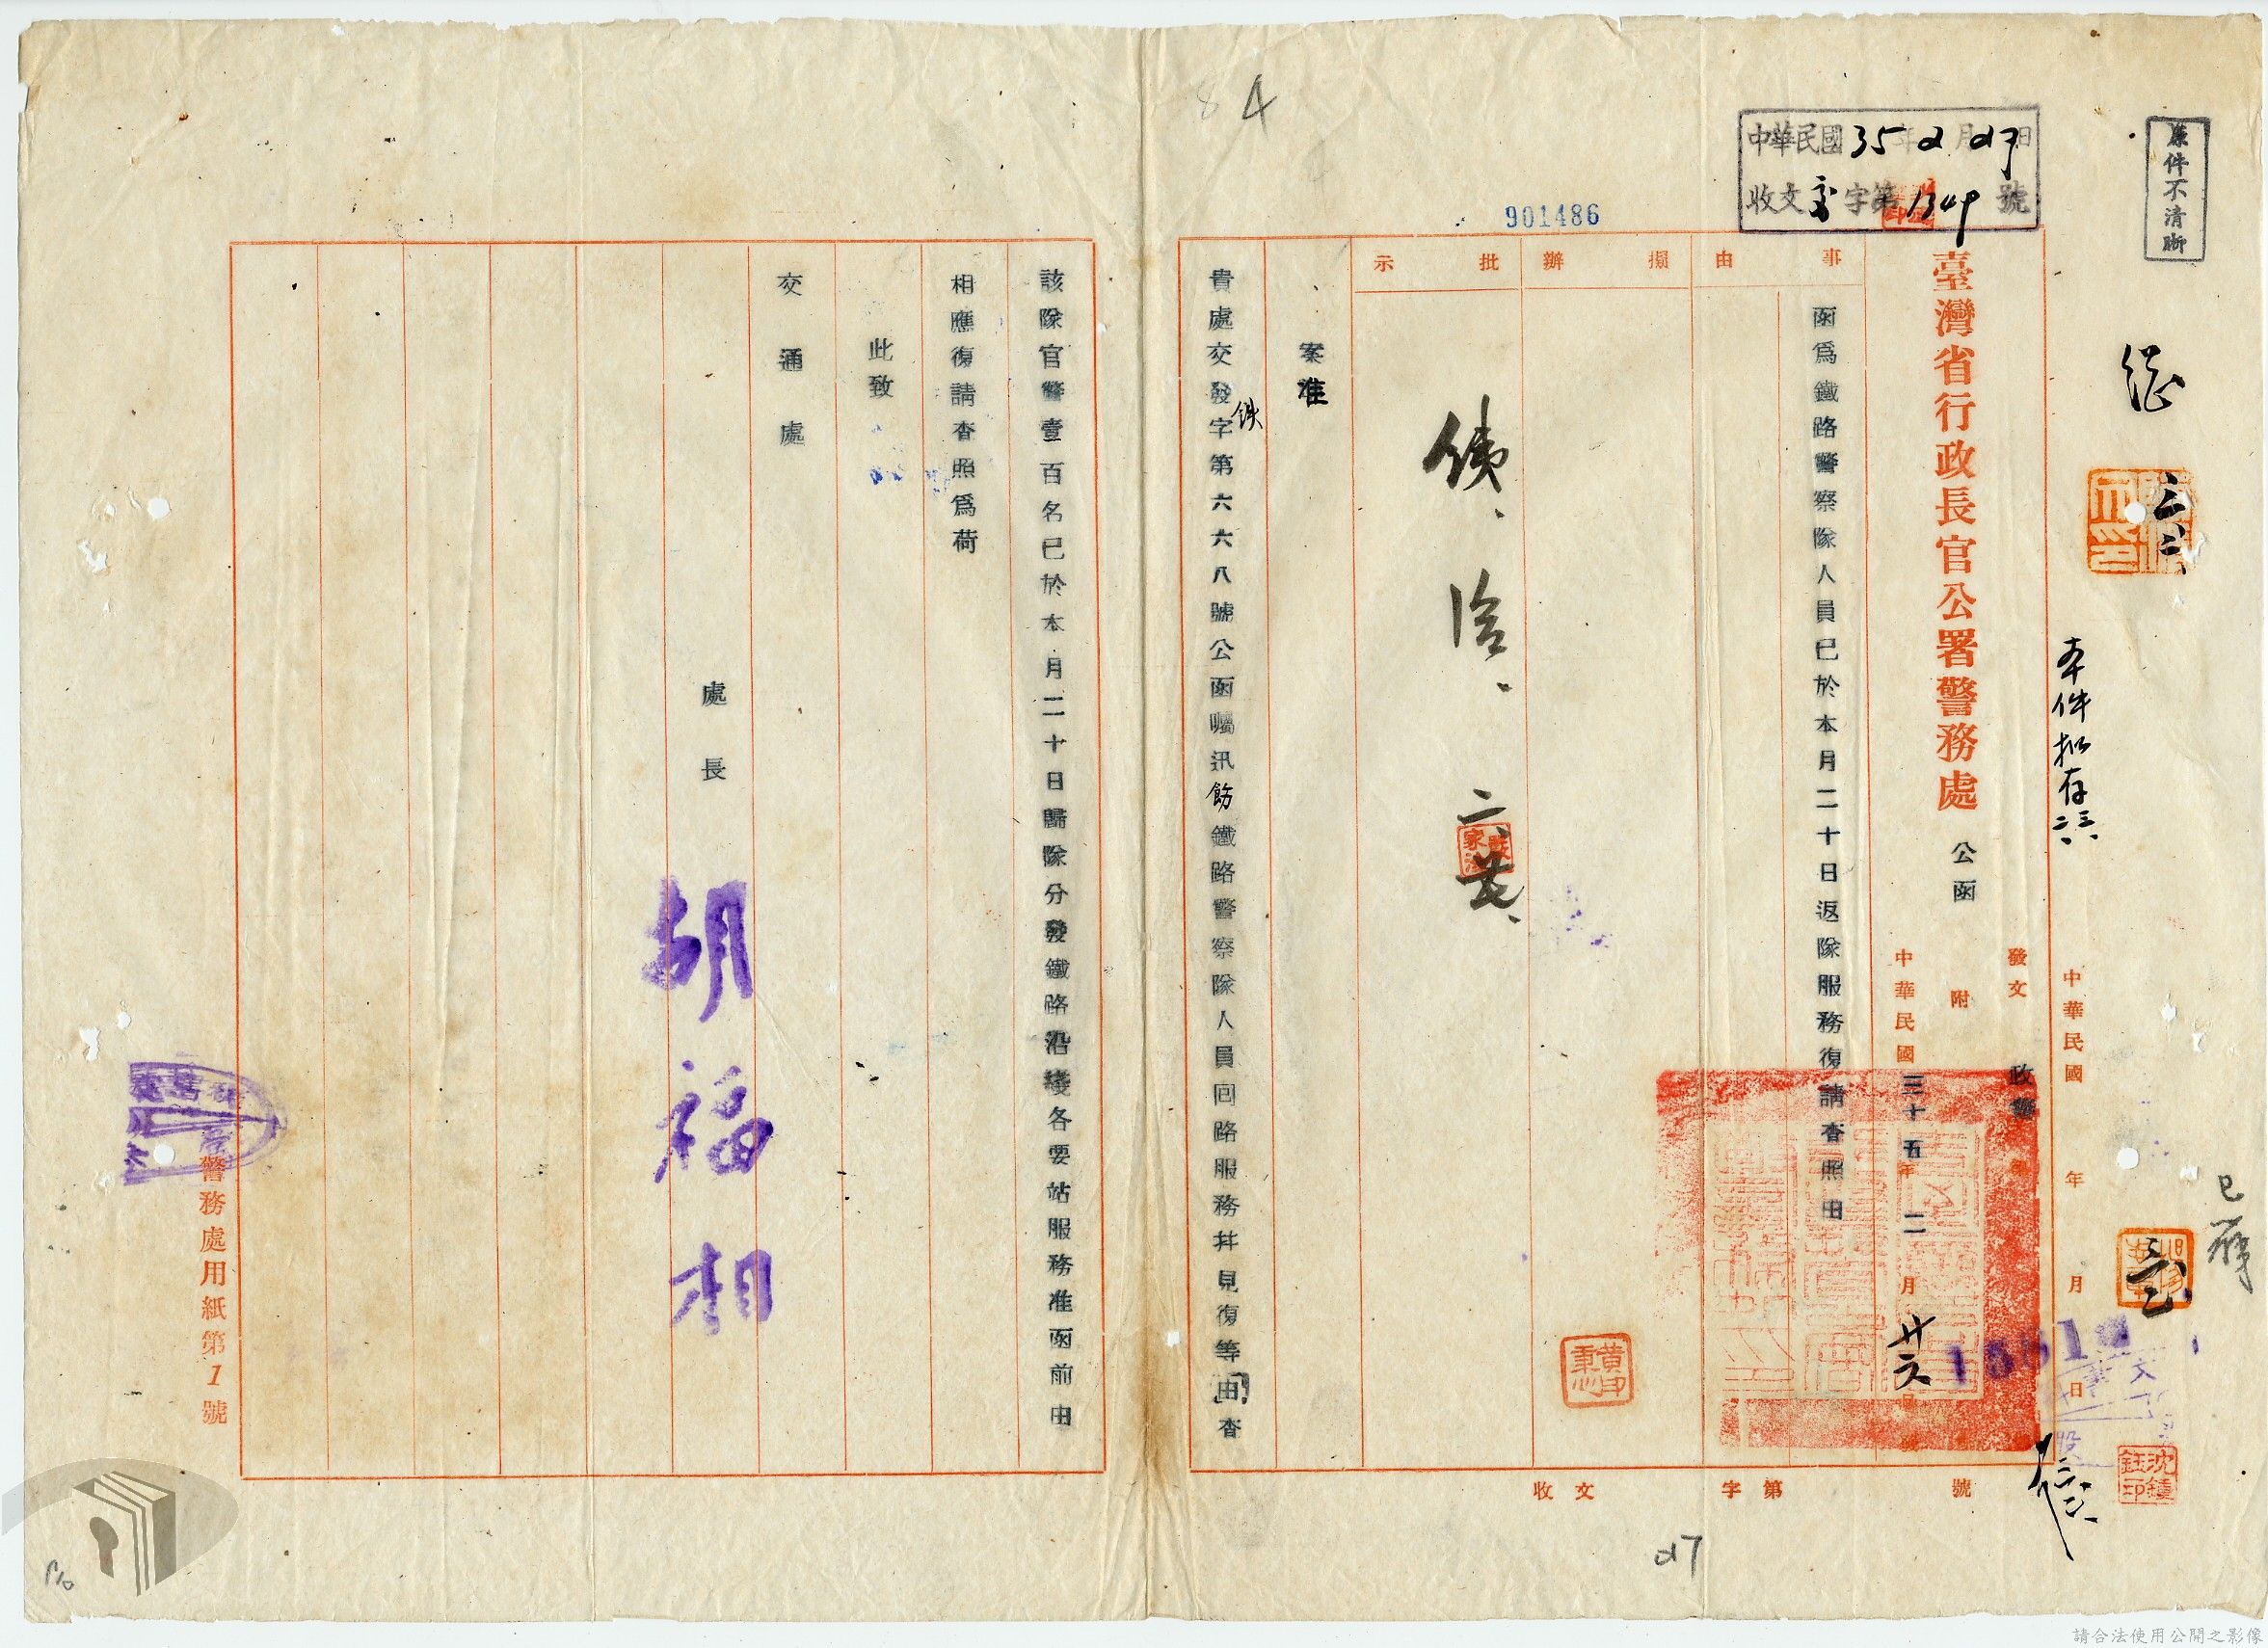 原件不清晰
中華民國35年2月27日
收文 字第1349號
901486
84
本件擬存
已辦
中華民國 年 月 日
發文
政警
臺灣省行政長官公署警務處 公函
附
中華民國三十五年二月廿六日
事由
擬辦
批示
函爲鐵路警察隊人員已於本月二十日返隊服務復請查照由
案准
貴處交鉄發字第六六八號公函囑迅飭鐵路警察隊人員回路服務并見復等由查
該隊官警壹百名已於本月二十日歸隊分發鐵路沿綫各要站服務准函前由
相應復請查照爲荷
此致
交通處
處長 胡福相
警務處用紙第1號
收文 字第 號
沈鍾鈺印
27
請合法使用公開之影像